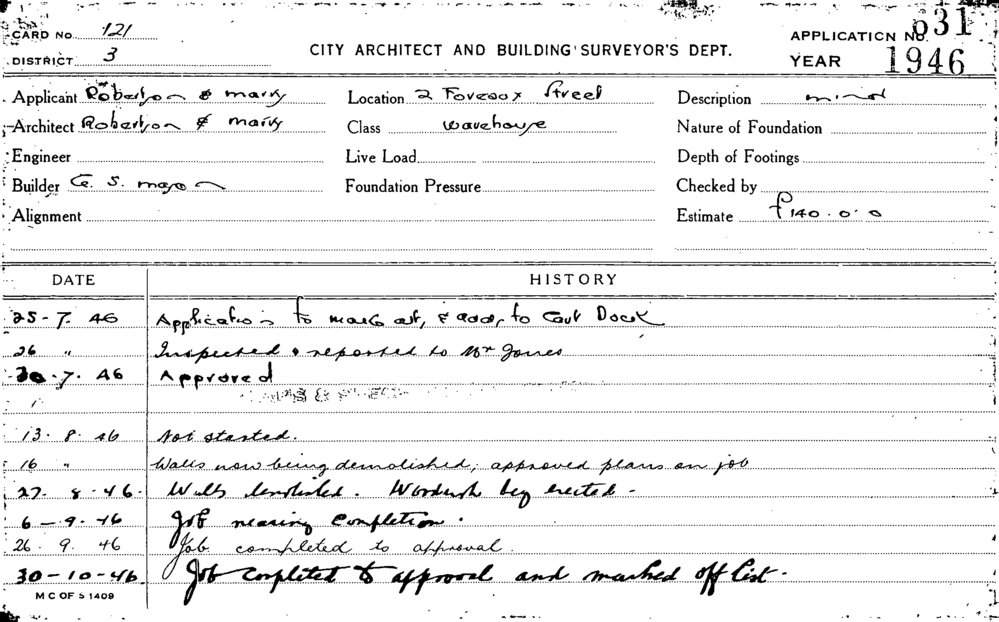 CARD No. 121
DISTRICT 3
CITY ARCHITECT AND BUILDING SURVEYOR'S DEPT.
APPLICATION No. 631
YEAR 1946
Applicant Robertson & Marks Location 2 Foveaux Street Description minor
Architect Robertson & Marks Class warehouse Nature of Foundation
Engineer Live Load Depth of Footings
Builder G. S. Mason Foundation Pressure Checked by
Alignment Estimate £140.0.0
DATE HISTORY
25-7. 46 Application to alts, & adds, to Cart Dock
26 " Inspected & reported to Mr Jones
30-7. 46 Approved
13. 8. 46 Not started.
16 " Walls now being demolished; approved plans on job
27. 8-46. Walls demolished. Woodwork beg erected-
6-9.46 Job nearing completion.
26. 9. 46 Job completed to approval.
30-10-46. Job completed to approval and marked off list.
M C OF S 1409